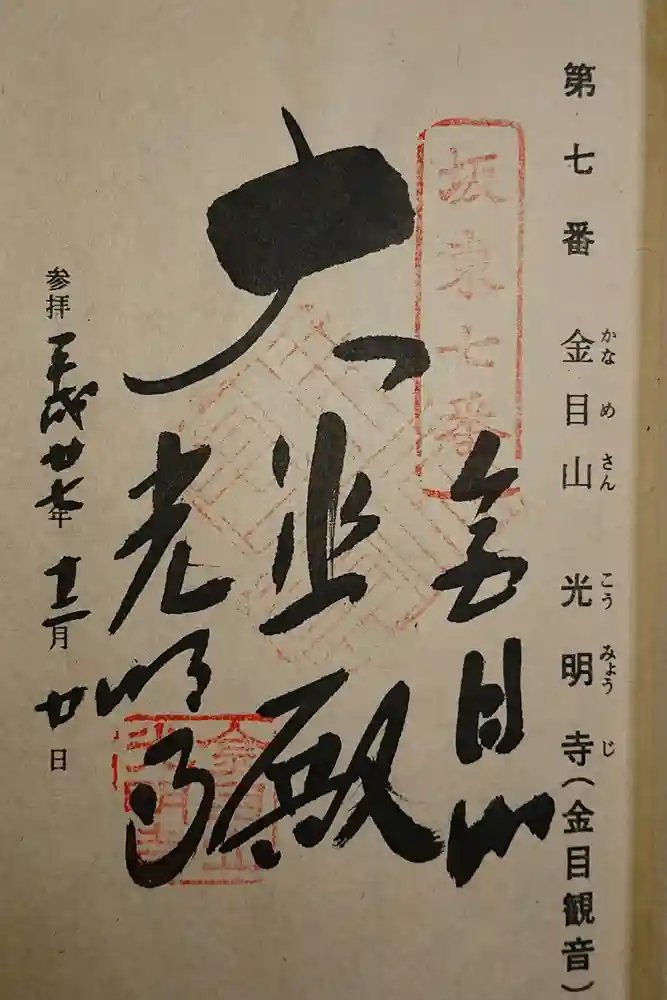 第七番 金目山 光明寺(金目観音)
かなめさん こうみょうじ
坂東七番
金目山
大悲殿
光明寺
参拝 平成廿七年 十二月 廿日